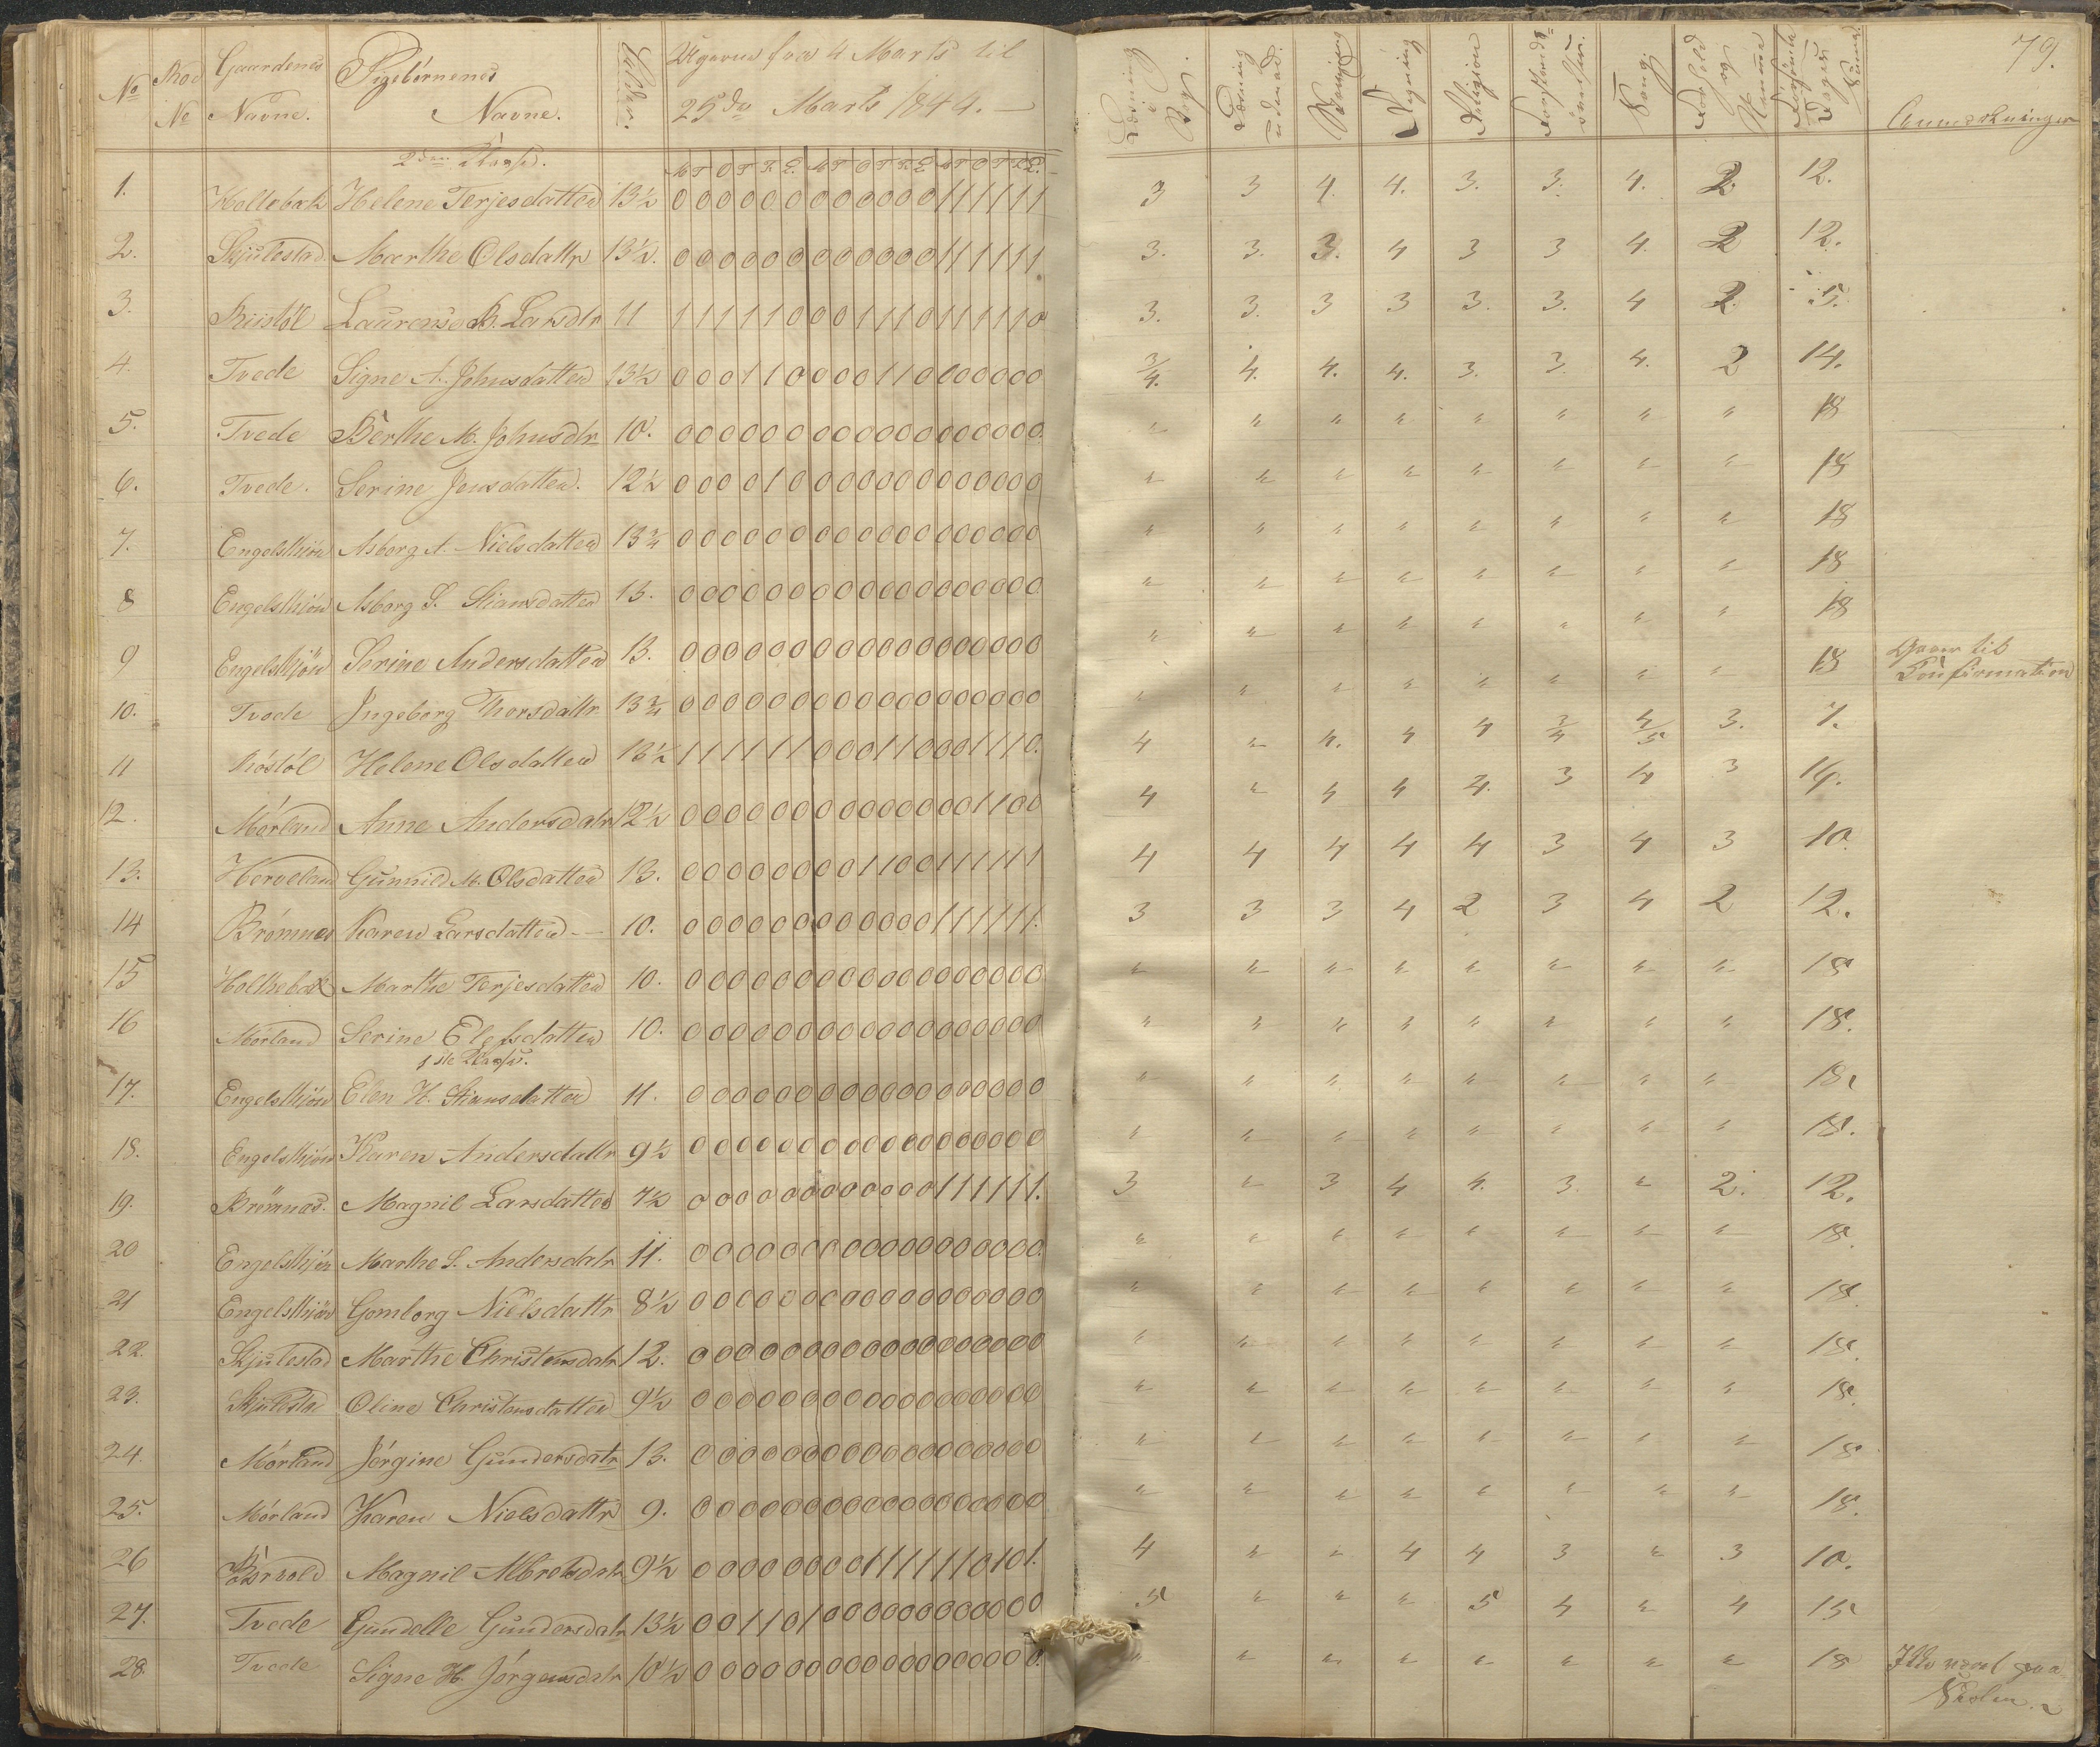 No Rod No Gaardenes Navne. Pigebörnenes Navne. Alder. Ugerne fra 4 Marts til 25de Marts 1844. Læsning i Bog. Læsning udenad. Skrivning Regning Religion Forstands-övelser. Sang. Forhold og Forsömte Dages Summa 79. Anmærkninger
2den Classe. M T O T F L M T O T F L M T O T F L
1. Holtebæk Helene Terjesdatter 13½ 0 0 0 0 0 0 0 0 0 0 0 0 1 1 1 1 1 1 3 3 4. 4. 3. 3. 4. 2. 12.
2. Skjulestad Marthe Olsdattr 13½. 0 0 0 0 0 0 0 0 0 0 0 0 1 1 1 1 1 1. 3. 3. 3. 4 3 3 4. 2 12.
3. Riistöl Laurense B. Larsdtr 11 1 1 1 1 1 0 0 0 1 1 1 0 1 1 1 1 1 0 3. 3. 3 3 3. 3. 4 2. 5.
4. Tvede Signe A. Johnsdatter 13½ 0 0 0 1 1 0 0 0 0 1 1 0 0 0 0 0 0 0 3/4. 4. 4. 4. 3. 3. 4. 2 14.
5. Tvede Berthe M. Johnsdtr 10. 0 0 0 0 0 0 0 0 0 0 0 0 0 0 0 0 0 0. " " " " " " " " 18
6. Tvede. Serine Jensdatter. 12½ 0 0 0 0 1 0 0 0 0 0 0 0 0 0 0 0 0 0 " " " " " " " " 18
7. Engelskjön Asborg A. Nielsdatter 13¾ 0 0 0 0 0 0 0 0 0 0 0 0 0 0 0 0 0 0 " " " " " " " " 18
8 Engelskjön Asborg S. Stiansdatter 13. 0 0 0 0 0 0 0 0 0 0 0 0 0 0 0 0 0 0 " " " " " " " " 18
9 Engelskjön Serine Andersdatter 13. 0 0 0 0 0 0 0 0 0 0 0 0 0 0 0 0 0 0 " " " " " " " " 18
10. Tvede Ingeborg Thorsdattr 13¾ 0 0 0 0 0 0 0 0 0 0 0 0 0 0 0 0 0 0 " " " " " " " " 18 Gaaer til Confirmation
11 Röstöl Helene Olsdatter 13½ 1 1 1 1 1 1 0 0 0 1 1 0 0 0 1 1 1 0. 4 " 4. 4 4 3/4 4/5 3. 7.
12. Mörland Anne Andersdatr 12½ 0 0 0 0 0 0 0 0 0 0 0 0 0 0 1 1 0 0 4 " 4 4 4. 3 4 3 16.
13. Herveland Gunnild M. Olsdatter 13. 0 0 0 0 0 0 0 0 1 1 0 0 1 1 1 1 1 1 4 4 4 4 4 3 4 3 10
14 Brömnes Karen Larsdatter 10. 0 0 0 0 0 0 0 0 0 0 0 0 1 1 1 1 1 1. 3 3 3 4 2 3 4 2 12.
15 Holtebæk Marthe Terjesdatter 10. 0 0 0 0 0 0 0 0 0 0 0 0 0 0 0 0 0 0 " " " " " " " " 18
16 Mörland Serine Elefsdatter 10. 0 0 0 0 0 0 0 0 0 0 0 0 0 0 0 0 0 0 " " " " " " " " 18.
1ste Classe.
17. Engelskjön Elen H. Stiansdatter 11. 0 0 0 0 0 0 0 0 0 0 0 0 0 0 0 0 0 0 " " " " " " " " 18.
18. Engelskjön Karen Andersdattr 9½ 0 0 0 0 0 0 0 0 0 0 0 0 0 0 0 0 0 0 " " " " " " " " 18.
19. Brömnæs. Magnil Larsdatter 7½ 0 0 0 0 0 0 0 0 0 0 0 0 1 1 1 1 1 1. 3 " 3 4 4. 3. " 2. 12.
20 Engelskjön Marthe S. Andersdatr 11. 0 0 0 0 0 0 0 0 0 0 0 0 0 0 0 0 0 0. " " " " " " " " 18.
21 Engelskjön Gomborg Nielsdattr 8½ 0 0 0 0 0 0 0 0 0 0 0 0 0 0 0 0 0 0 " " " " " " " " 18.
22. Skjulestad Marthe Christensdatr 12. 0 0 0 0 0 0 0 0 0 0 0 0 0 0 0 0 0 0 " " " " " " " " 18.
23. Skjulestad Oline Christensdatter 9½ 0 0 0 0 0 0 0 0 0 0 0 0 0 0 0 0 0 0 " " " " " " " " 18.
24. Mörland Jörgine Gundersdatr 13. 0 0 0 0 0 0 0 0 0 0 0 0 0 0 0 0 0 0 " " " " " " " " 18
25. Mörland Karen Nielsdattr 9. 0 0 0 0 0 0 0 0 0 0 0 0 0 0 0 0 0 0 " " " " " " " " 18.
26 Magnil Albretsdatr 9½ 0 0 0 0 0 0 0 0 1 1 1 1 1 1 0 1 0 1. 4 " " 4 4 3 " 3 10.
27. Tvede Gundelle Gundersdatr 13½ 0 0 1 1 0 1 0 0 0 0 0 0 0 0 0 0 0 0 5 " " " 5 4 " 4 15
28. Tvede Signe H. Jörgensdatr 10½ 0 0 0 0 0 0 0 0 0 0 0 0 0 0 0 0 0 0. " " " " " " " " 18 Ikke været paa Skolen.